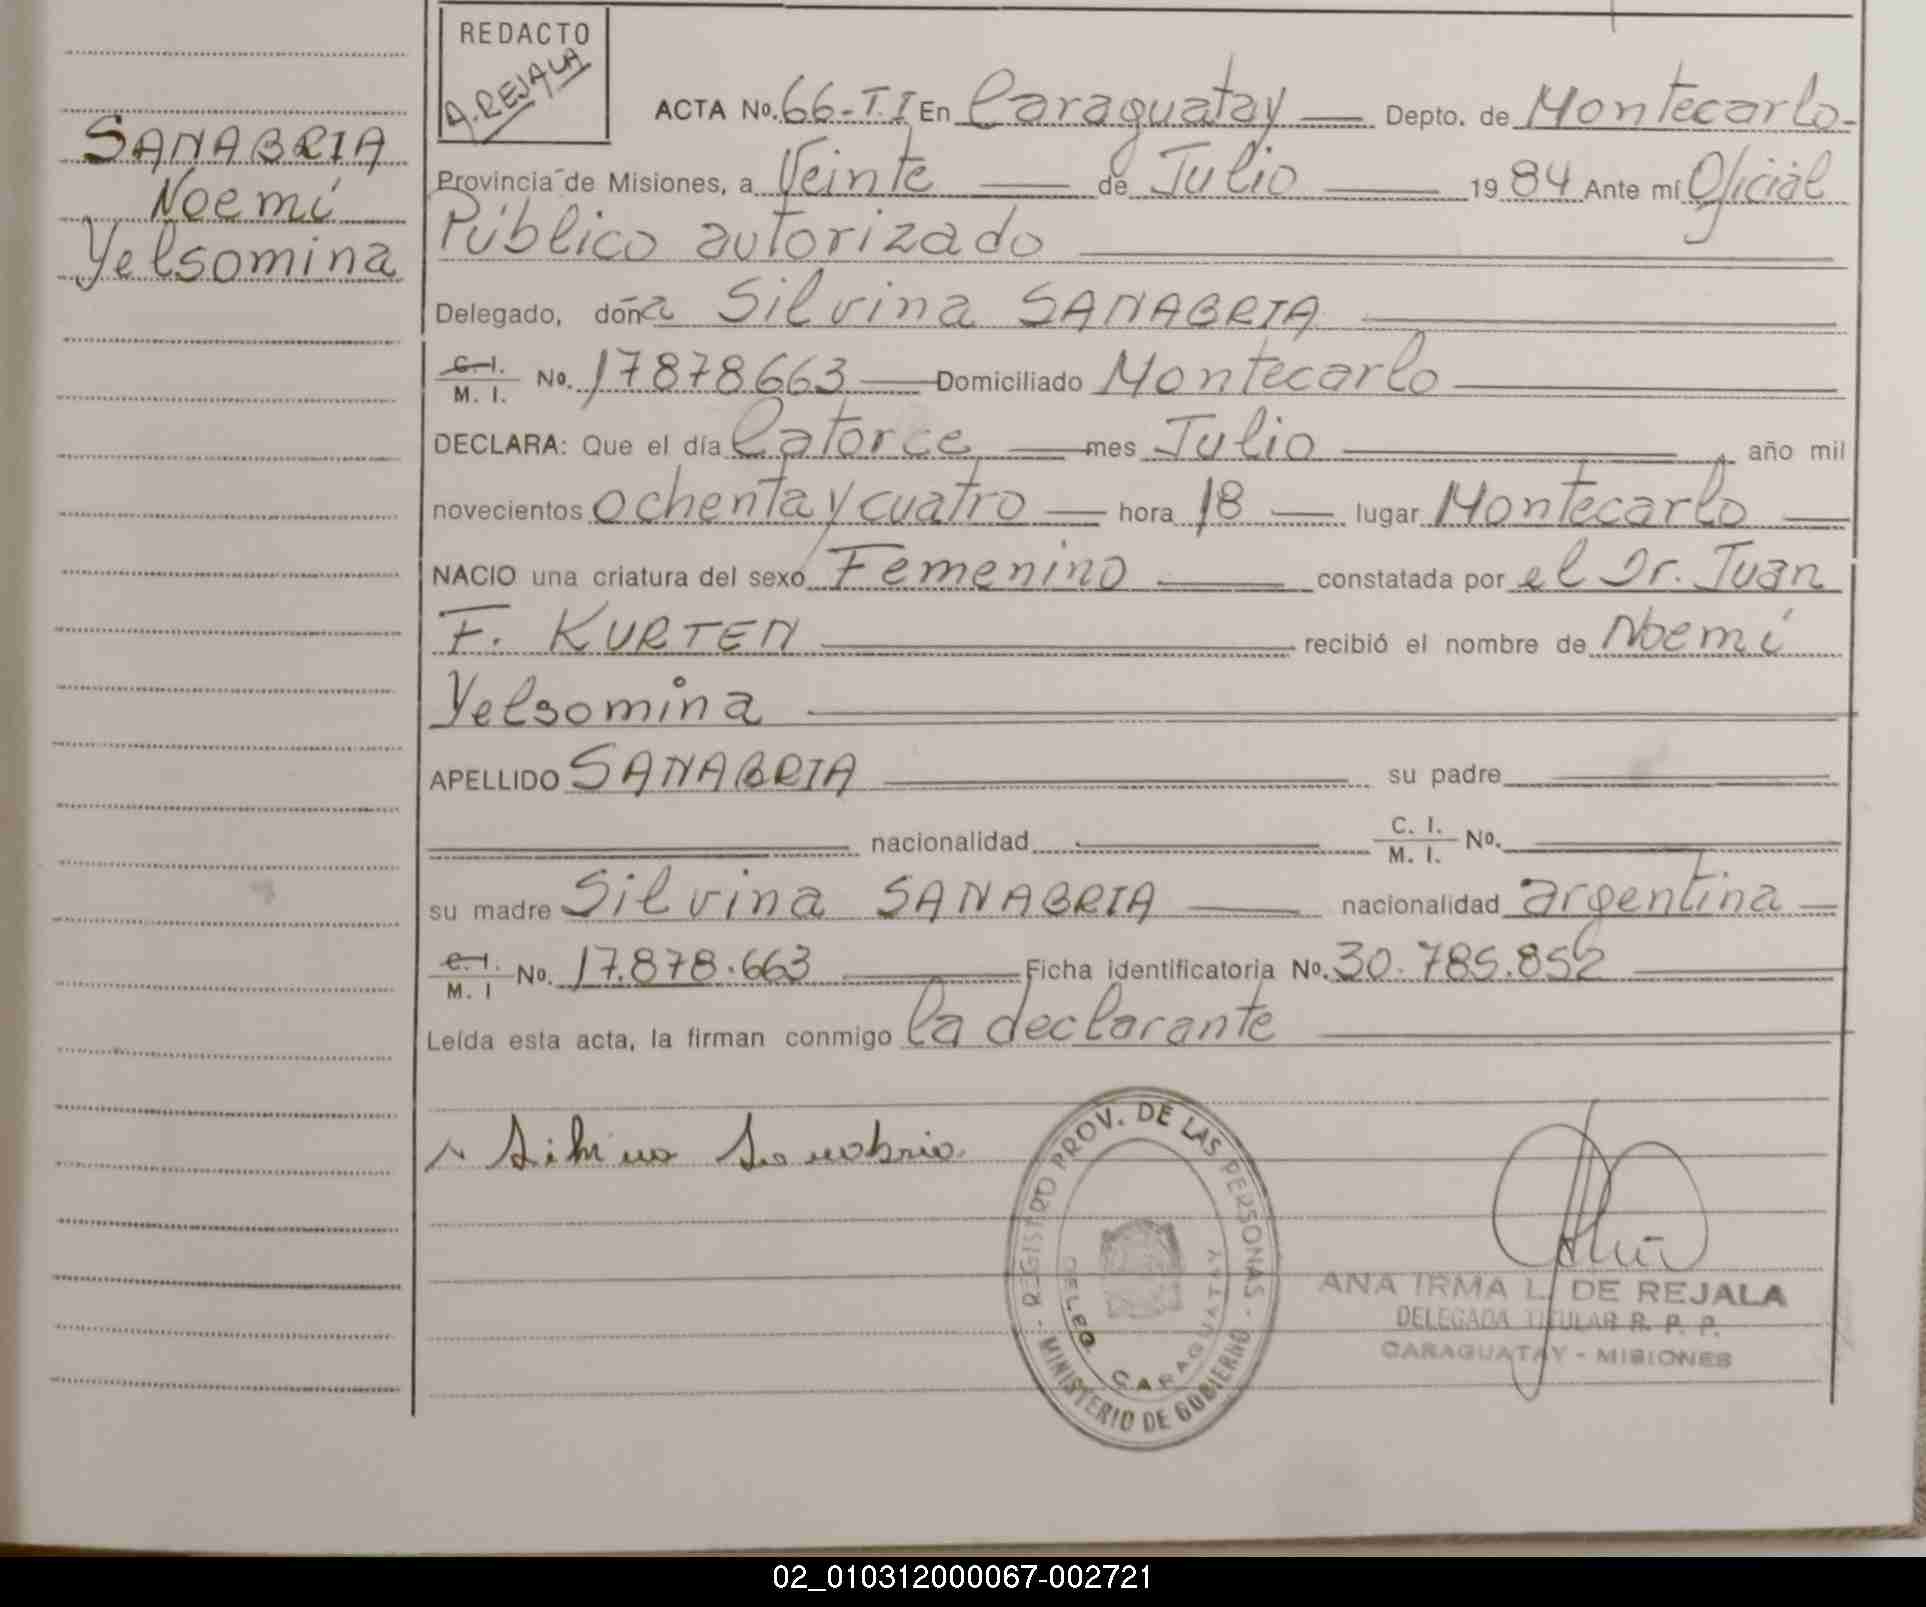 SANABRIA
Noemí
Yelsomina
REDACTO
A. REJALA
ACTA No. 66-T.I En Caraguatay Depto. de Montecarlo
Provincia de Misiones, a Veinte de Julio 1984 Ante mí Oficial
Público autorizado
Delegado, doña Silvina SANABRIA
C. I.
M. I. No. 17878663 Domiciliado Montecarlo
DECLARA: Que el día Catorce mes Julio, año mil
novecientos ochenta y cuatro hora 18 lugar Montecarlo
NACIO una criatura del sexo Femenino constatada por el Dr. Juan
F. KURTEN recibió el nombre de Noemí
Yelsomina
APELLIDO SANABRIA su padre
nacionalidad C. I.
M. I. No.
su madre Silvina SANABRIA nacionalidad argentina
C. I.
M. I No. 17.878.663 Ficha identificatoria No. 30.785.852
Leída esta acta, la firman conmigo la declarante
Silvina Sanabria
REGISTRO PROV. DE LAS PERSONAS - MINISTERIO DE GOBIERNO -
DELEG. CARAGUATAY
ANA IRMA L. DE REJALA
DELEGADA TITULAR R. P. P.
CARAGUATAY - MISIONES
02_010312000067-002721